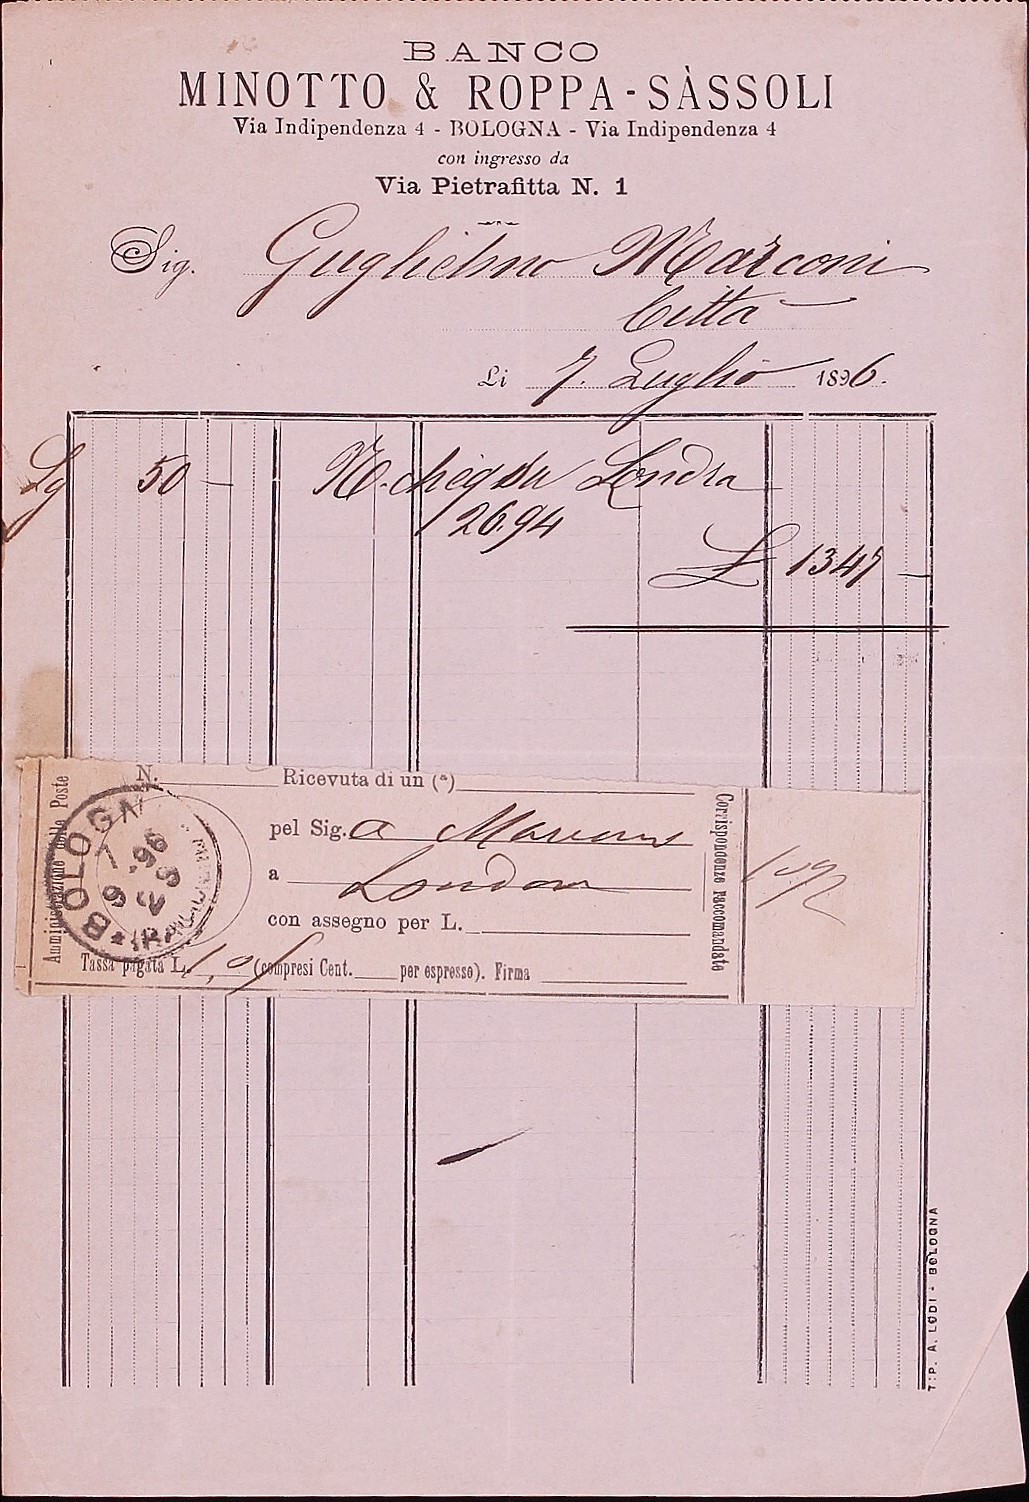 BANCO
MINOTTO & ROPPA-SÀSSOLI
Via Indipendenza 4 - BOLOGNA - Via Indipendenza 4
con ingresso da
Via Pietrafitta N. 1
Sig. Guglielmo Marconi
Città
Li 7. Luglio 1896.
Lg 50 — N. chèque Londra
26.94
£ 1347 —
Amministrazione delle Poste
N. Ricevuta di un (*)
pel Sig. a Marconi
a London
con assegno per L.
Tassa pagata L. (compresi Cent. per espresso). Firma
Corrispondenze raccomandate
BOLOGNA
7 - 96
9 S
TIP. A. LODI - BOLOGNA